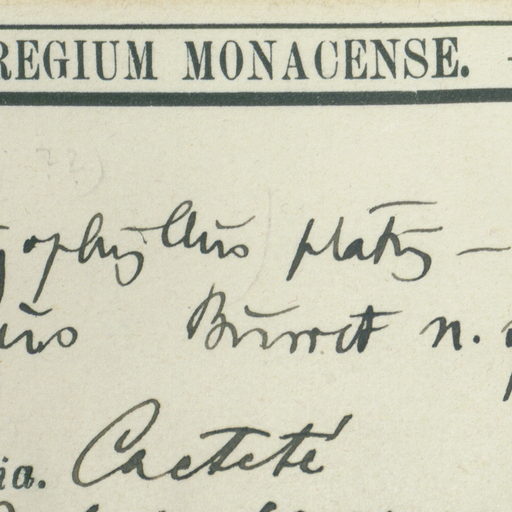 REGIUM MONACENSE.
ophyllus platy-
us Burret n.
ia. Caeteté